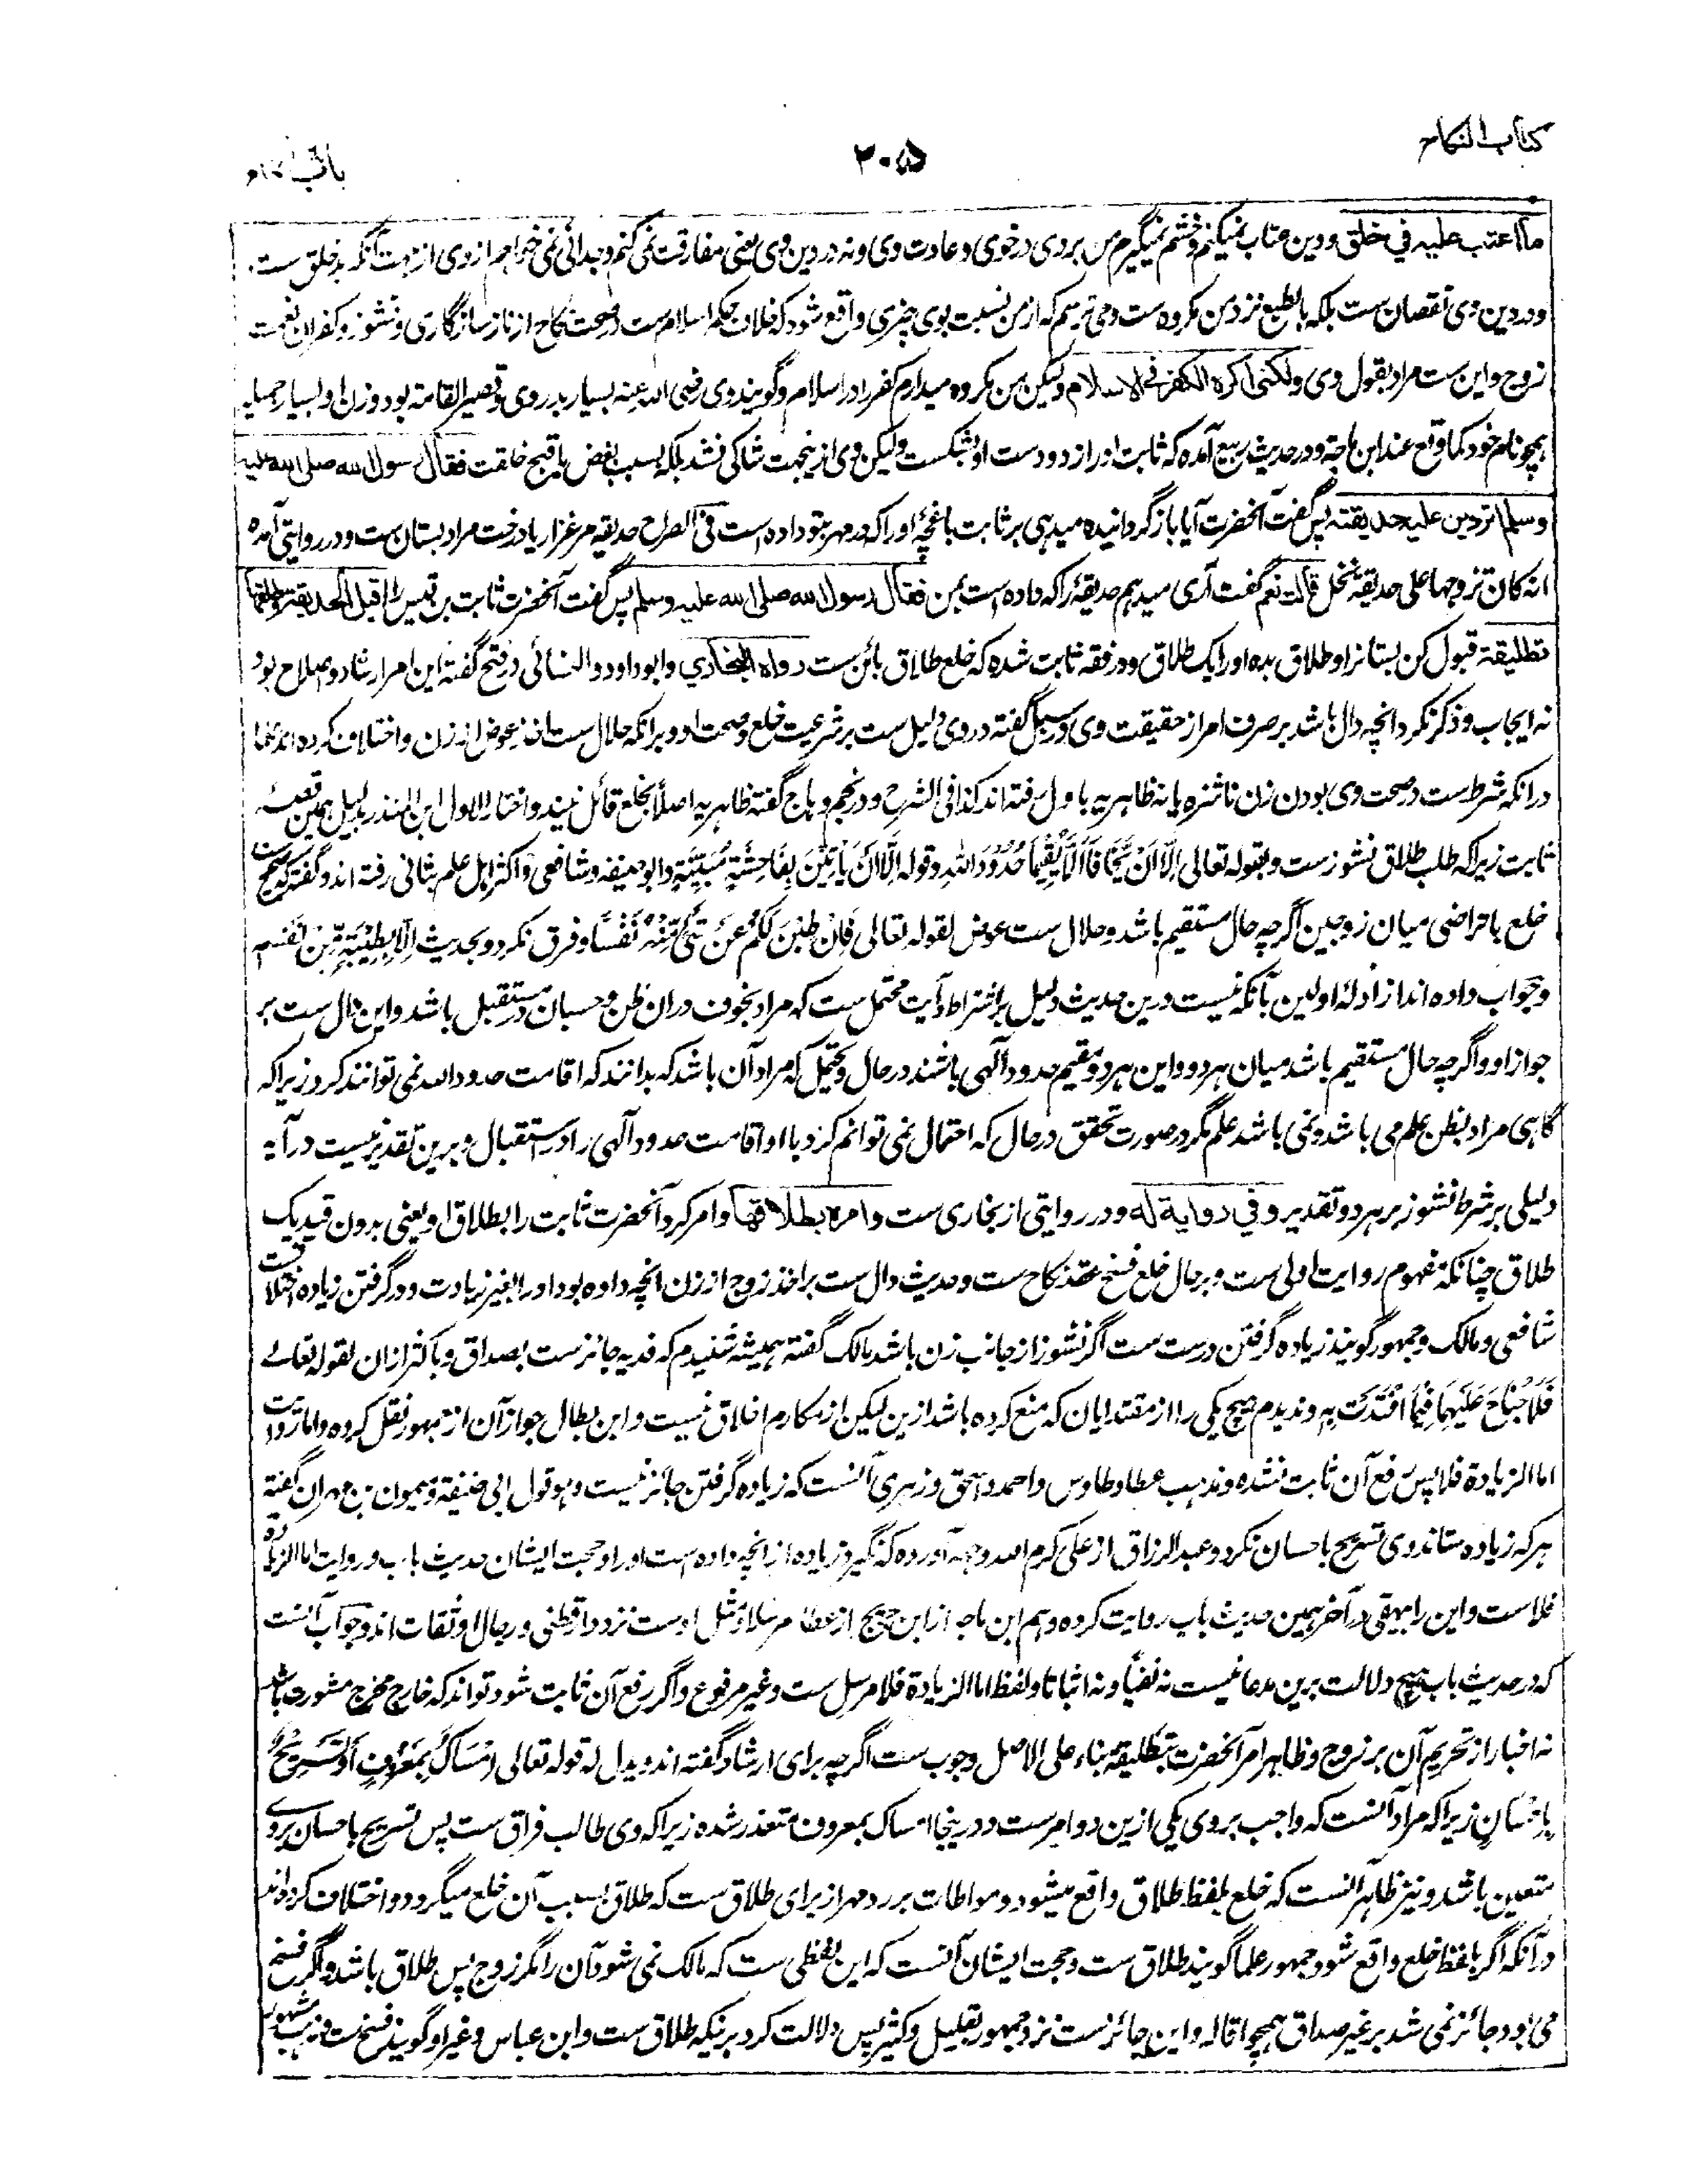 کتاب النکاح
۲۰۵
ما اعتب علیه فی خلق و دین عتاب نمیکنم و خشم نمیگیرم من بر وی در خوی و عادت وی و نه در دین وی یعنی مفارقت نمی کنم و جدائی نمی خواهم از وی از جهت آنکه بد خلق ست
و در دین وی نقصان ست بلکه بالطبع نزد من مکروه ست و می ترسم که از من نسبت بوی چیزی واقع شود که خلاف حکم اسلام ست در صحت نکاح از ناسازگاری و نشوز و کفران نعمت
زوج و این ست مراد بقول وی ولکنی اکره الکفر فی الاسلام ولیکن من مکروه میدارم کفر را در اسلام و گویند وی رضی الله عنه بسیار بدروی و قصیر القامة بود و زن او بسیار جمیله
همچو نام خود کما وقع عند ابن ماجة و در حدیث ربیع آمده که ثابت او را زد و دست او بشکست ولیکن وی ازین جهت شاکی نشد بلکه بسبب بغض یا قبح خلقت فقال رسول الله صلی الله علیه
وسلم اتردین علیه حدیقته پس گفت آنحضرت آیا باز گردانیده میدهی بر ثابت باغچهٔ او را که در مهر بتو داده است فی الصراح حدیقه مرغزار با درخت مراد بستان ست و در روایتی آمده
انه کان تزوجها علی حدیقة نخل قالت نعم گفت آری میدهم حدیقه را که داده است بمن فقال رسول الله صلی الله علیه وسلم پس گفت آنحضرت ثابت بن قیس را اقبل الحدیقة وطلقها
تطلیقة قبول کن بستانرا و طلاق بده او را یک طلاق و در فقه ثابت شده که خلع طلاق بائن ست رواه البخاری و ابو داود و النسائی در فتح گفته این امر ارشاد و اصلاح بود
نه ایجاب و ذکر نکرد آنچه دال باشد بر صرف امر از حقیقت وی و در سبل گفته در وی دلیل ست بر شرعیت خلع و صحت او و بر آنکه حلال ست اخذ عوض از زن و اختلاف کرده اند علما
در آنکه شرط ست در صحت وی بودن زن ناشزه یا نه ظاهریه باول رفته اند کذا فی الشرح و در نجم وهاج گفته ظاهریه اصلا بخلع قائل نیند و اختار الاول ابن المنذر بدلیل همین قصهٔ
ثابت زیرا که طلب طلاق نشوز ست و بقوله تعالی اِلَّا اَنْ یَّخَافَا اَلَّا یُقِیْمَا حُدُوْدَ اللهِ وقوله اِلَّا اَنْ یَّاْتِیْنَ بِفَاحِشَةٍ مُّبَیِّنَةٍ و ابو حنیفه و شافعی و اکثر اهل علم بثانی رفته اند و گفته که صحیح ست
خلع با تراضی میان زوجین اگرچه حال مستقیم باشد و حلال ست عوض لقوله تعالی فَاِنْ طِبْنَ لَکُمْ عَنْ شَیْءٍ مِّنْهُ نَفْسًا و فرق نکرد و بحدیث اِلَّا بِطِیْبَةٍ مِّنْ نَفْسِه
و جواب داده اند از ادلهٔ اولین بآنکه نیست درین حدیث دلیل بر اشتراط و آیت محتمل ست که مراد بخوف دران ظن و حسبان در مستقبل باشد و این دال ست بر
جواز او و اگرچه حال مستقیم باشد میان هر دو و این هر دو مقیم حدود آلهی باشند در حال و یحتمل که مراد آن باشد که بدانند که اقامت حدود الله نمی توانند کرد زیرا که
گاهی مراد بظن علم می باشد و نمی باشد علم مگر در صورت تحقق در حال که احتمال نمی توانم کرد با او اقامت حدود آلهی را در استقبال و برین تقدیر نیست در آیه
دلیلی بر شرط نشوز بر هر دو تقدیر و فی روایة له و در روایتی از بخاری ست و امره بطلاقها و امر کرد آنحضرت ثابت را بطلاق او یعنی بدون قید یک
طلاق چنانکه مفهوم روایت اولی ست و بر حال خلع فسخ عقد نکاح ست و حدیث دال ست بر اخذ زوج از زن آنچه داده بود او را بغیر زیادت و در گرفتن زیاده اختلاف ست
شافعی و مالک و جمهور گویند زیاده گرفتن درست ست اگر نشوز از جانب زن باشد مالک گفته همیشه شنیدم که فدیه جائز ست بصداق و باکثر ازان لقوله تعالی
فَلَا جُنَاحَ عَلَیْهِمَا فِیْمَا افْتَدَتْ بِهٖ و ندیدم هیچ یکی را از مقتدایان که منع کرده باشد ازین لیکن از مکارم اخلاق نیست و ابن بطال جواز آن از جمهور نقل کرده و اما روایت
اما الزیادة فلا پس رفع آن ثابت نشده و مذهب عطا و طاوس و احمد و اسحق و زهری آنست که زیاده گرفتن جائز نیست و هو قول ابی حنیفة و میمون بن مهران گفته
هر که زیاده ستاند وی تسریح باحسان نکرد و عبد الرزاق از علی کرم الله وجهه آورده که نگیرد زیاده از آنچه داده ست او را و حجت ایشان حدیث باب و روایت اما الزیادة
فلا ست و این را بیهقی در آخر همین حدیث باب روایت کرده و هم ابن ماجه از ابن جریج از عطا مرسلا و مثل او ست نزد دارقطنی و رجال او ثقات اند و جواب آنست
که در حدیث باب هیچ دلالت برین مدعا نیست نه نفیا و نه اثباتا و لفظ اما الزیادة فلا مرسل ست و غیر مرفوع و اگر رفع آن ثابت شود تواند که خارج مخرج مشورت باشد
نه اخبار از تحریم آن بر زوج و ظاهر امر آنحضرت بتطلیقه بناء علی الاصل وجوب ست اگرچه برای ارشاد گفته اند و یدل له قوله تعالی اِمْسَاكٌ بِمَعْرُوْفٍ اَوْ تَسْرِیْحٌ
بِاِحْسَانٍ زیرا که مراد آنست که واجب بر وی یکی ازین دو امر ست و در ینجا امساک بمعروف متعذر شده زیرا که وی طالب فراق ست پس تسریح باحسان بر وی
متعین باشد و نیز ظاهر آنست که خلع بلفظ طلاق واقع میشود و مواطات بر رد مهر از برای طلاق ست که طلاق بسبب آن خلع میگردد و اختلاف کرده اند
در آنکه اگر بلفظ خلع واقع شود جمهور علما گویند طلاق ست و حجت ایشان آنست که این لفظی ست که مالک نمی شود آن را مگر زوج پس طلاق باشد و اگر فسخ
می بود جائز نمی شد بر غیر صداق همچو اقاله و این جائز ست نزد جمهور بقلیل و کثیر پس دلالت کرد بر آنکه طلاق ست و ابن عباس و غیر او گویند فسخ ست و مشهور